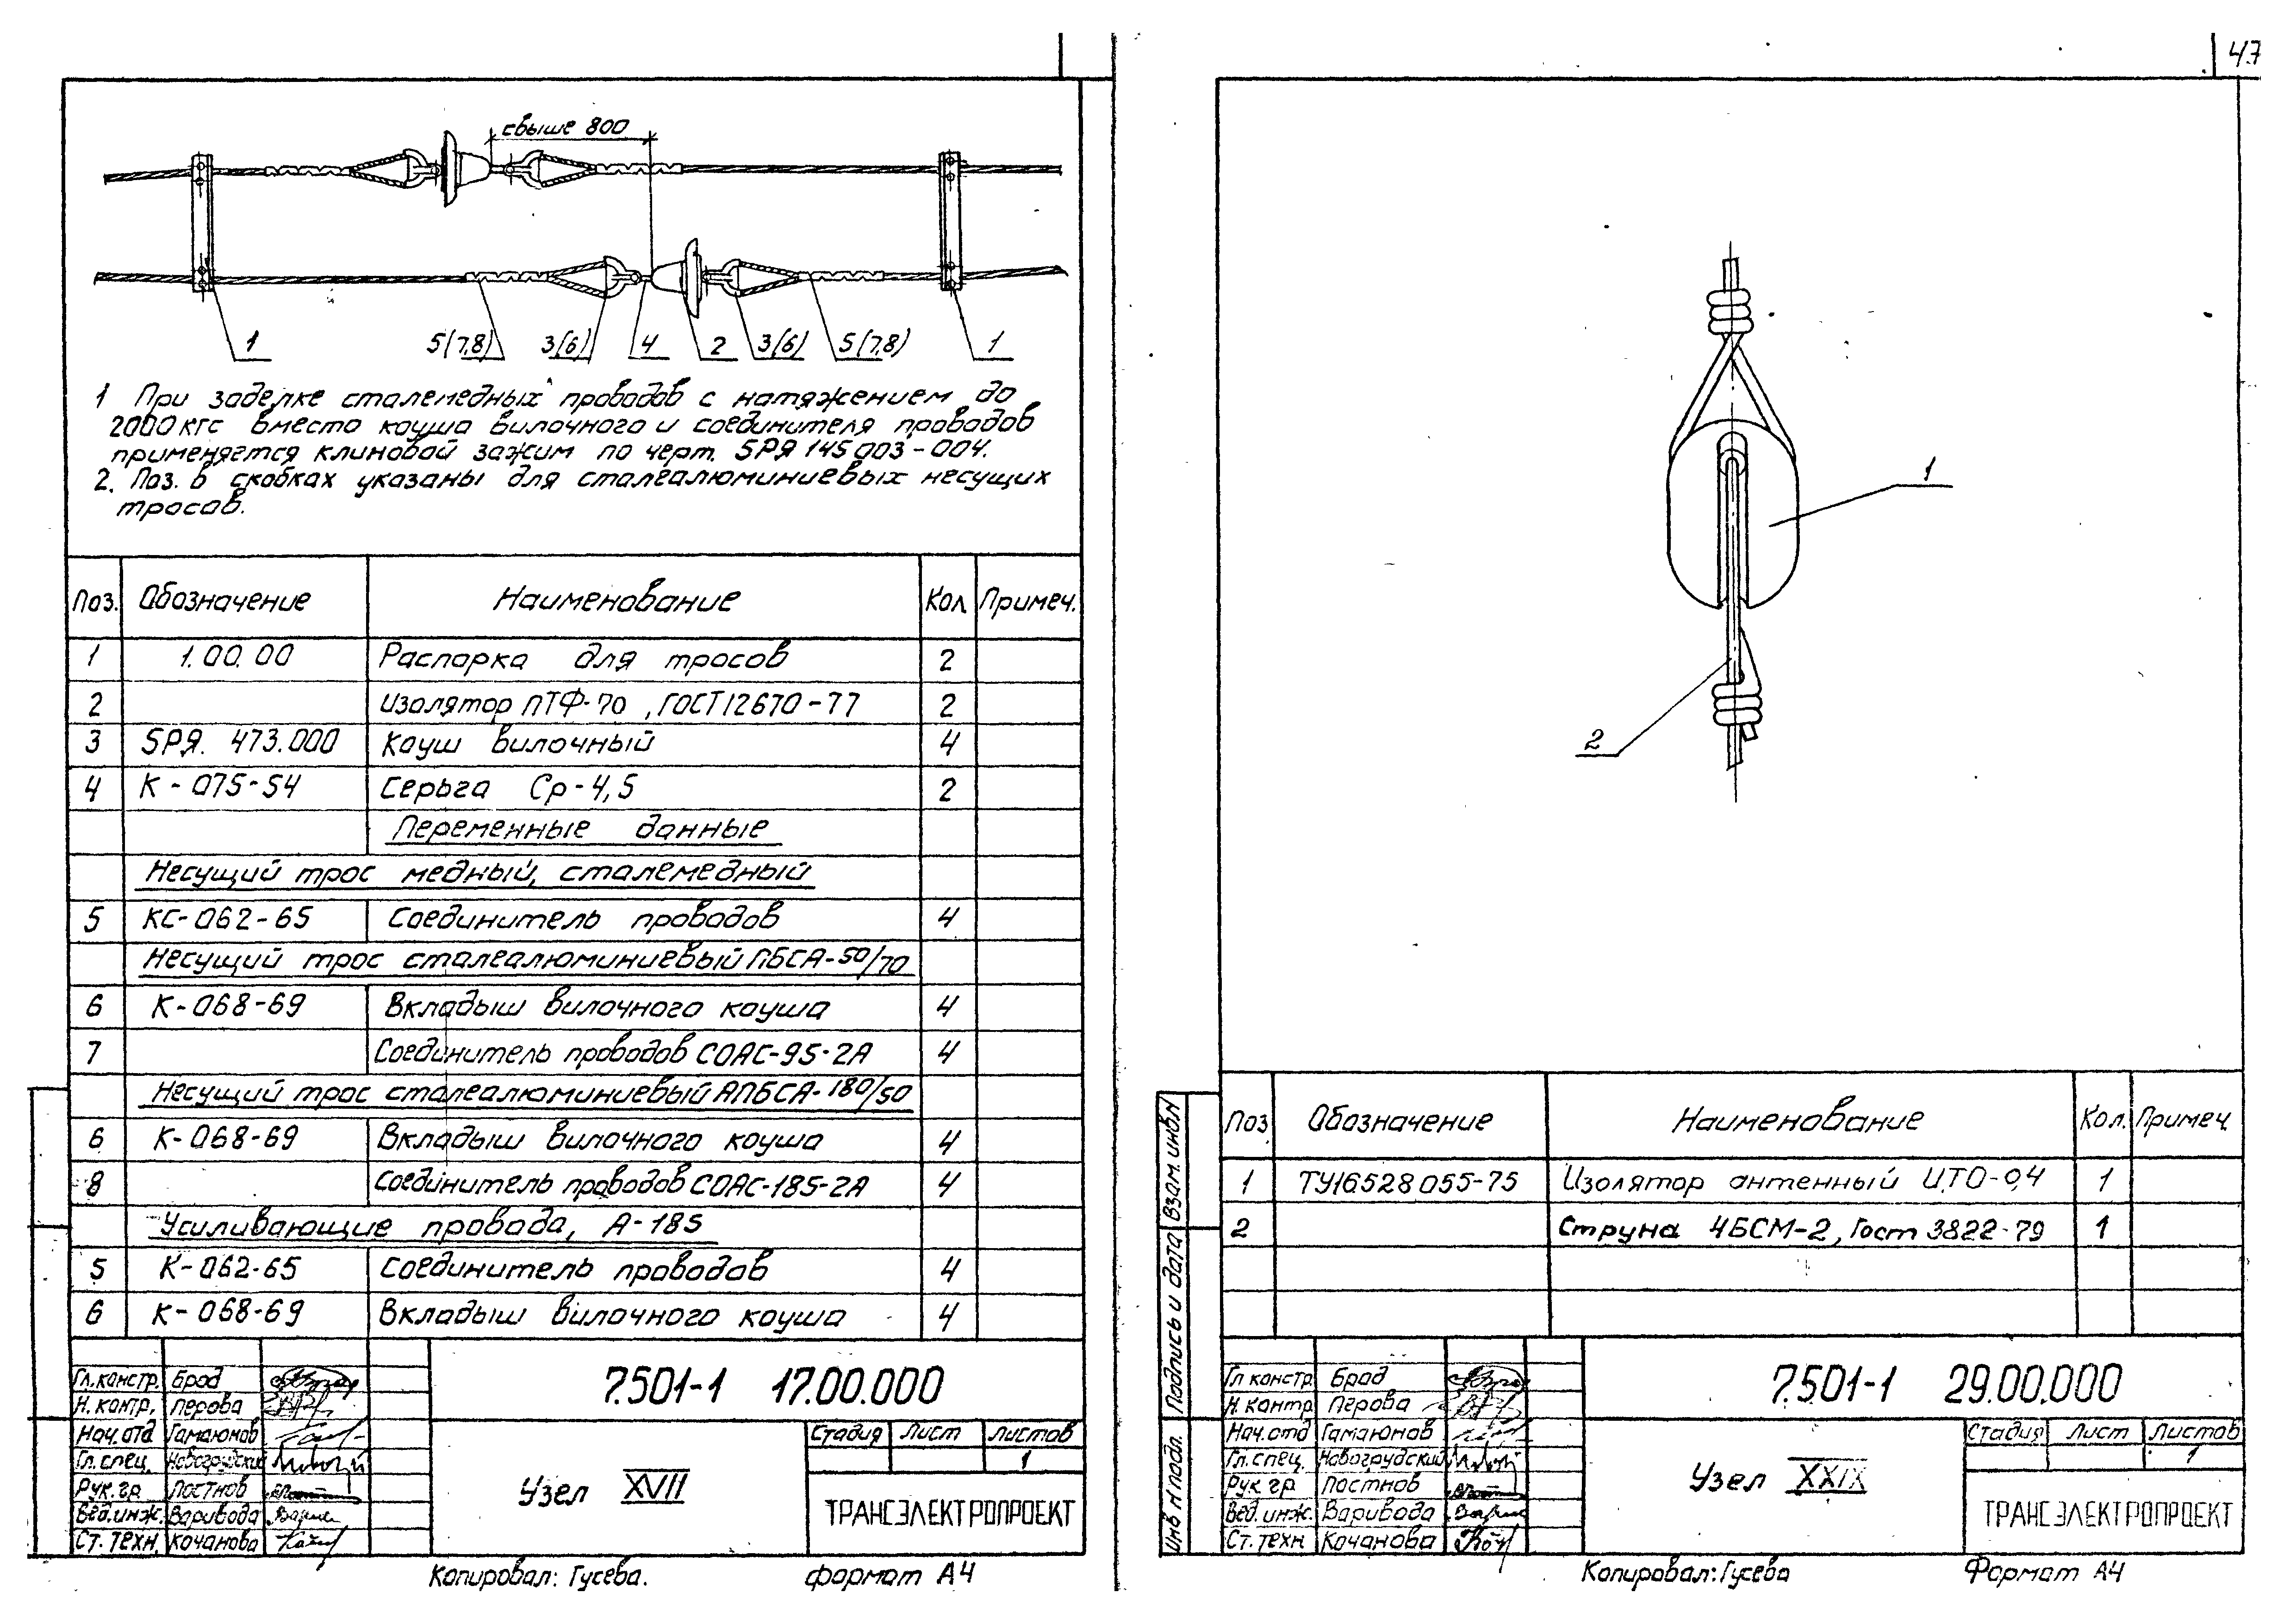 47
свыше 800
1 5(7,8) 3(6) 4 2 3(6) 5(7,8) 1
1 При заделке сталемедных проводов с натяжением до
2000 кгс вместо коуша вилочного и соединителя проводов
применяется клиновой зажим по черт. 5РЯ 145 003-004.
2. Поз. в скобках указаны для сталеалюминиевых несущих
тросов.
Поз. Обозначение Наименование Кол Примеч.
1 1.00.00 Распорка для тросов 2
2 Изолятор ПТФ-70, ГОСТ 12670-77 2
3 5РЯ. 473.000 Коуш вилочный 4
4 К-075-54 Серьга Ср-4,5 2
Переменные данные
Несущий трос медный, сталемедный
5 КС-062-65 Соединитель проводов 4
Несущий трос сталеалюминиевый ПБСА-50/70
6 К-068-69 Вкладыш вилочного коуша 4
7 Соединитель проводов СОАС-95-2А 4
Несущий трос сталеалюминиевый АПБСА-180/50
6 К-068-69 Вкладыш вилочного коуша 4
8 Соединитель проводов СОАС-185-2А 4
Усиливающие провода, А-185
5 К-062-65 Соединитель проводов 4
6 К-068-69 Вкладыш вилочного коуша 4
Гл. констр. Брод
Н. контр. Перова
Нач. отд Гамаюнов
Гл. спец. Новогрудский
Рук. гр Постнов
Вед. инж. Варивода
Ст. техн. Кочанова
7.501-1 17.00.000
Узел XVII
Стадия Лист Листов
1
ТРАНСЭЛЕКТРОПРОЕКТ
Копировал: Гусева. формат А4
1
2
Поз Обозначение Наименование Кол. Примеч.
1 ТУ16.528 055-75 Изолятор антенный ИТО-0,4 1
2 Струна 4БСМ-2, Гост 3822-79 1
Взам. инв.N
Подпись и дата
Инв N подл.
Гл констр Брод
Н. контр Перова
Нач. отд Гамаюнов
Гл. спец. Новогрудский
Рук. гр Постнов
Вед. инж. Варивода
Ст. техн Кочанова
7.501-1 29.00.000
Узел XXIX
Стадия Лист Листов
1
ТРАНСЭЛЕКТРОПРОЕКТ
Копировал: Гусева Формат А4